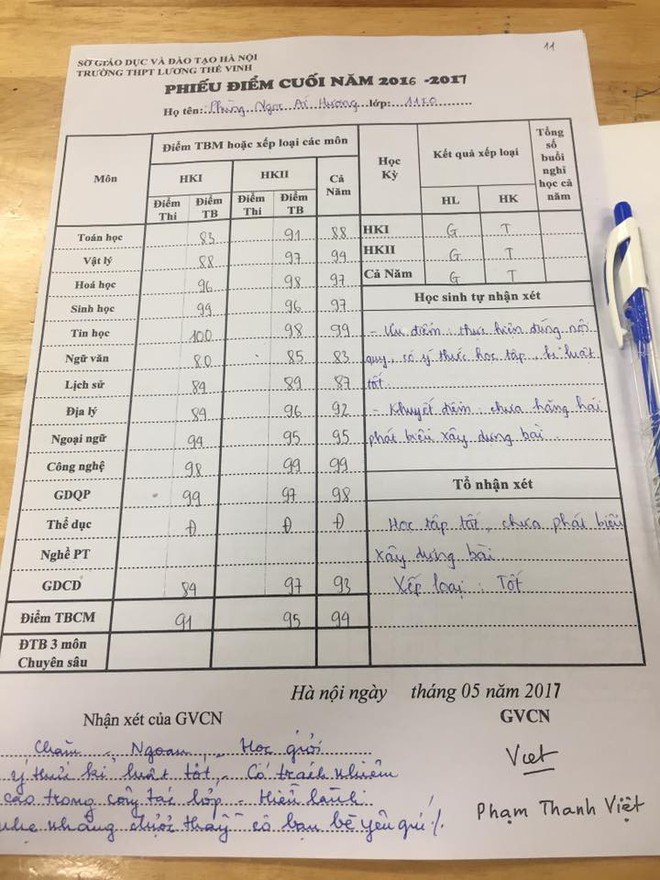 11
SỞ GIÁO DỤC VÀ ĐÀO TẠO HÀ NỘI
TRƯỜNG THPT LƯƠNG THẾ VINH
PHIẾU ĐIỂM CUỐI NĂM 2016 -2017
Họ tên: Phùng Ngọc Ái Hương lớp:
Môn Điểm TBM hoặc xếp loại các môn Học Kỳ Kết quả xếp loại Tổng số buổi nghỉ học cả năm
HKI HKII Cả Năm HL HK
Điểm Thi Điểm TB Điểm Thi Điểm TB
Toán học 83 91 88
HKI G T
Vật lý 88 97 94
HKII G T
Hoá học 96 98 97
Cả Năm G T
Sinh học 99 96 97
Học sinh tự nhận xét
Tin học 100 98 99
- Ưu điểm: thực hiện đúng nội
Ngữ văn 80 85 83
quy, có ý thức học tập, kỉ luật
Lịch sử 84 89 87
tốt.
Địa lý 84 96 92
- Khuyết điểm: chưa hăng hái
Ngoại ngữ 94 95 95
phát biểu xây dựng bài.
Công nghệ 98 99 99
GDQP 99 97 98
Tổ nhận xét
Thể dục Đ Đ Đ
Học tập tốt, chưa phát biểu
Nghề PT
xây dựng bài
GDCD 84 97 93
Xếp loại: Tốt
Điểm TBCM 91 95 94
ĐTB 3 môn Chuyên sâu
Hà nội ngày tháng 05 năm 2017
Nhận xét của GVCN
GVCN
Chăm - Ngoan, Học giỏi
Việt
ý thức kỉ luật tốt, - Có trách nhiệm
cao trong công tác lớp - Hiền lành
Phạm Thanh Việt
nhẹ nhàng được thầy cô bạn bè yêu quí